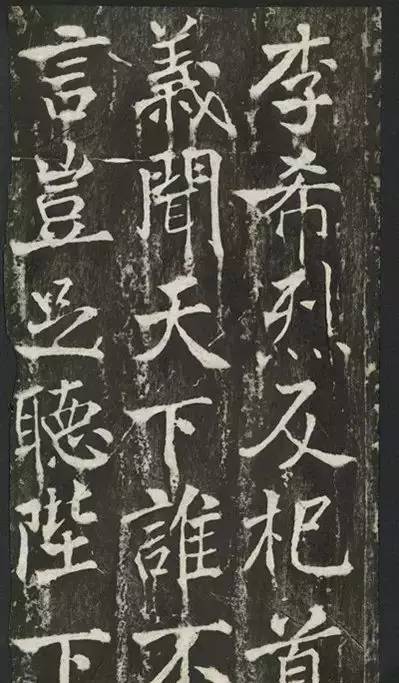 李希烈反杞首
義聞天下誰不
言豈足聽陛下